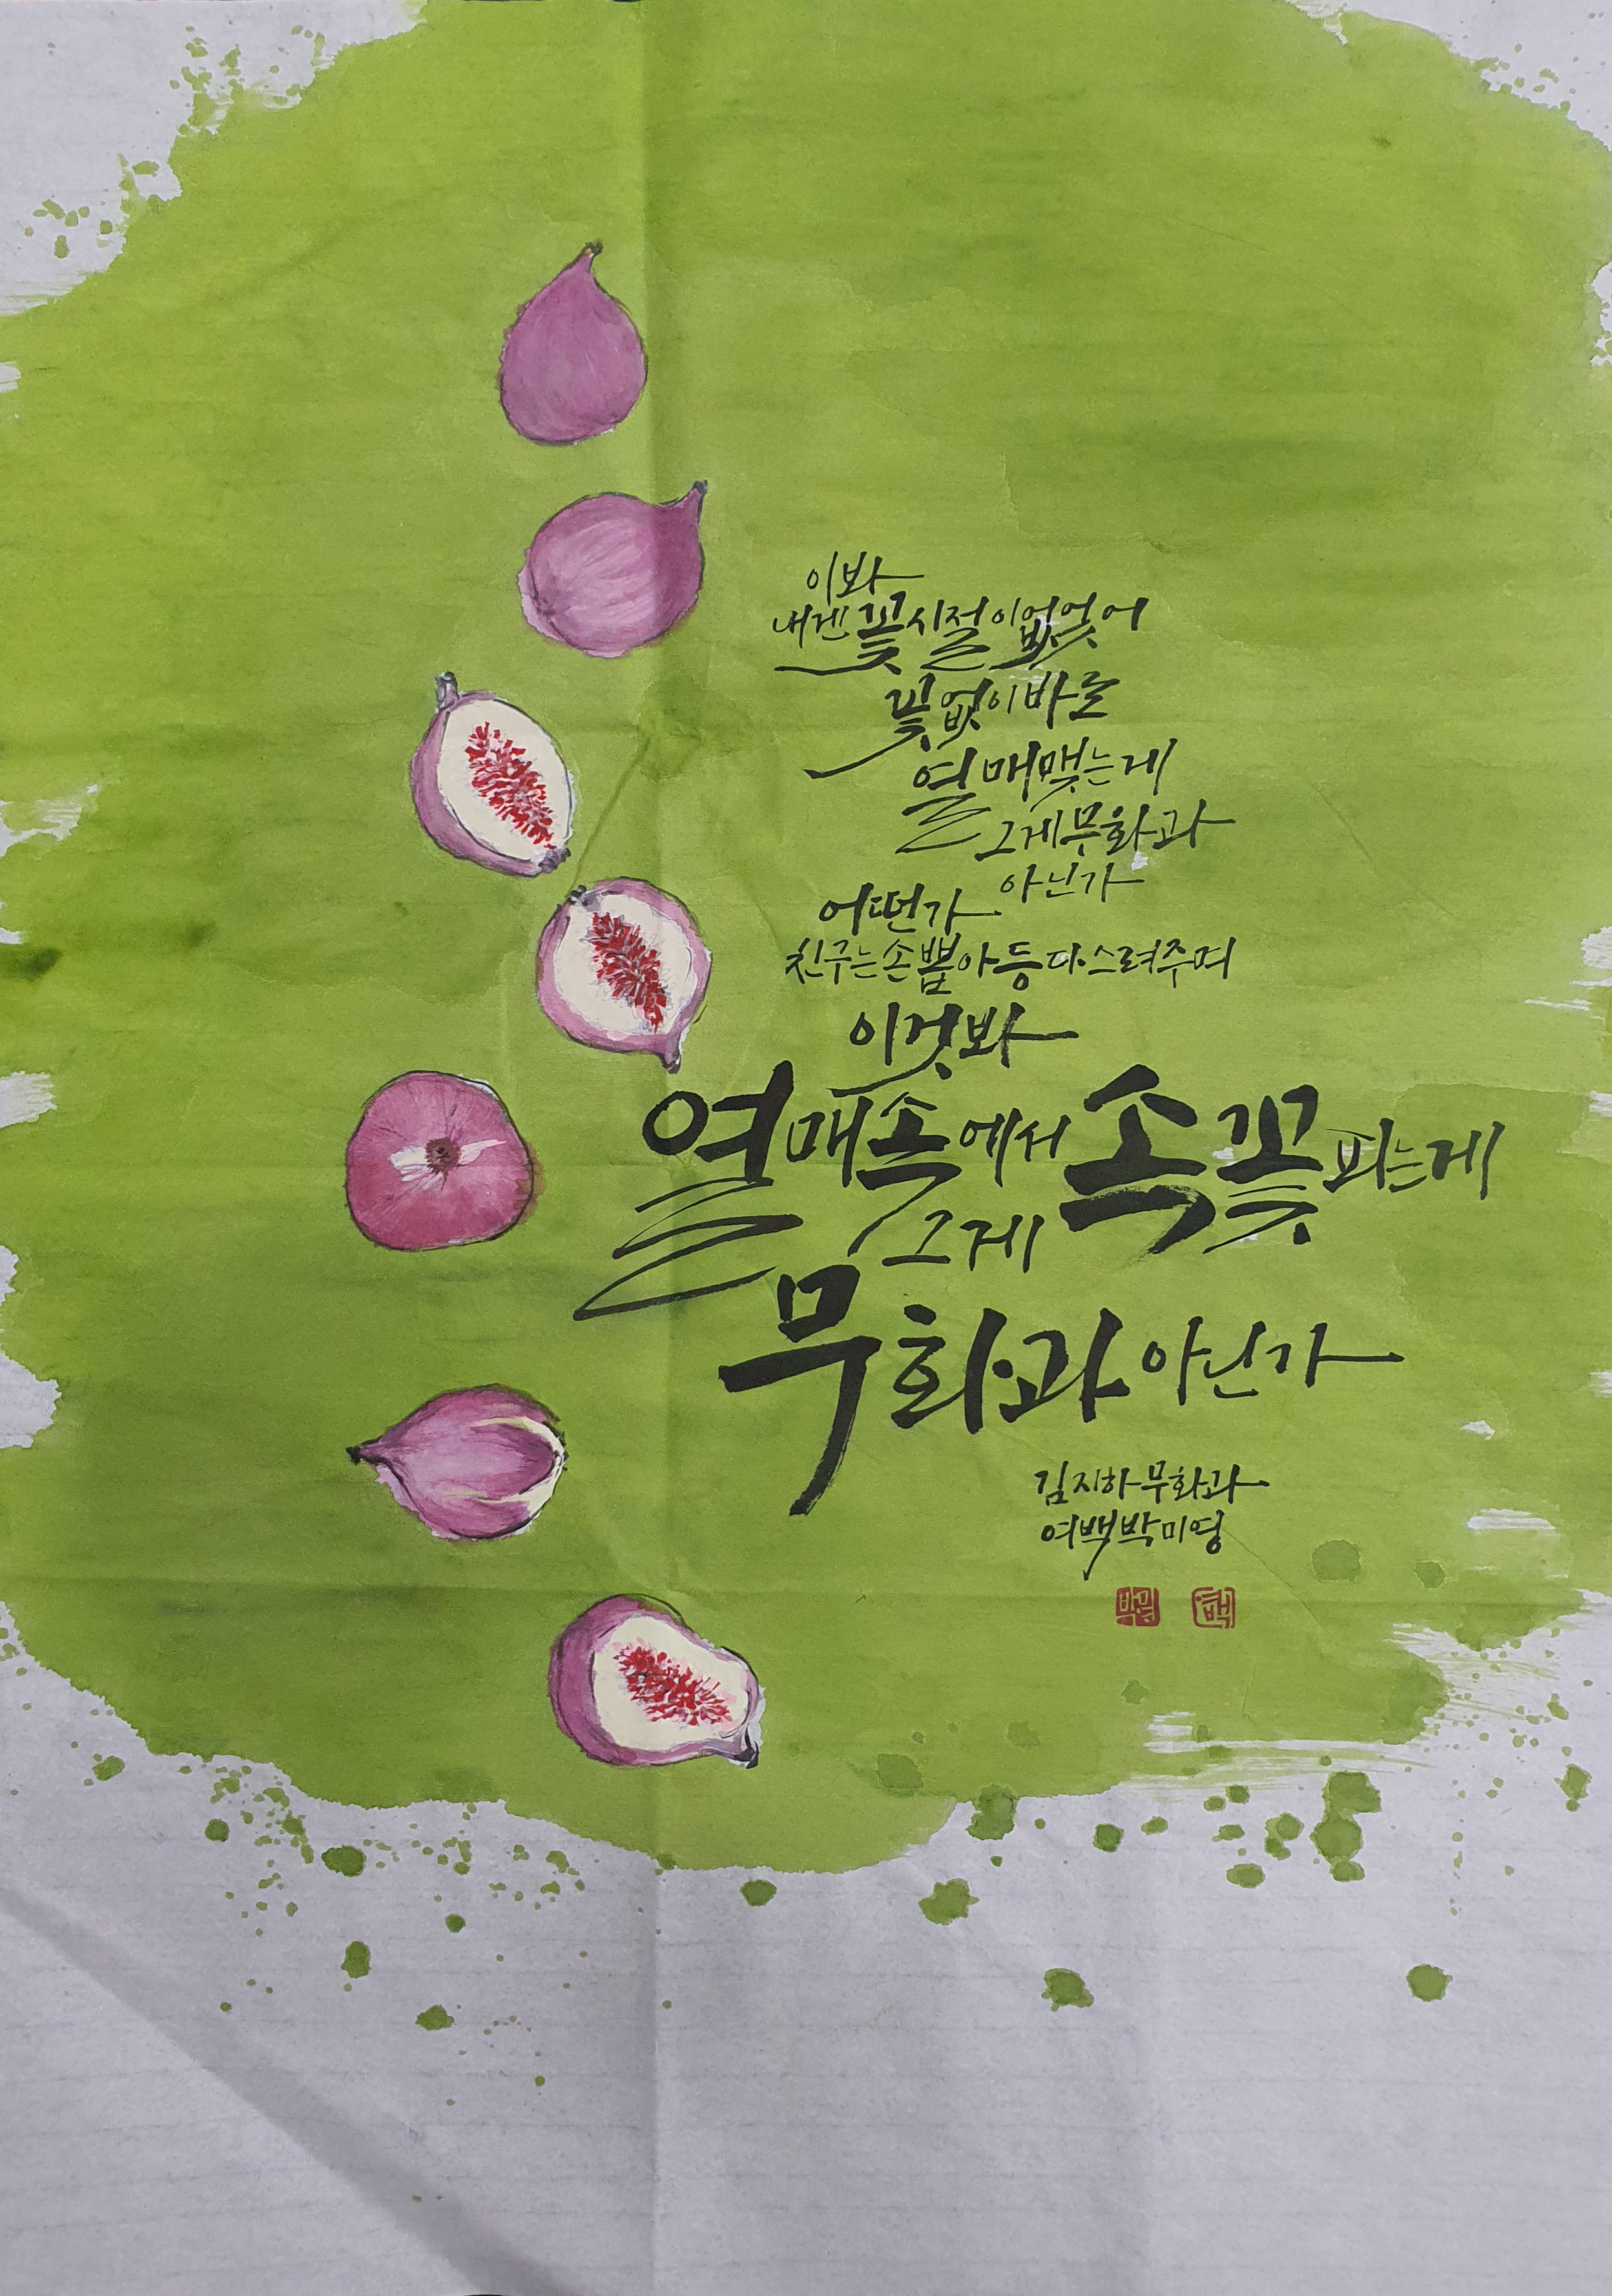 이봐
내겐 꽃시절이 없었어
꽃 없이 바로
열매 맺는 게
그게 무화과
아닌가
어떤가
친구는 손 뽑아 등 다스려주며
이것봐
열매 속에서 속꽃 피는 게
그게
무화과 아닌가
김지하 무화과
여백 박미영